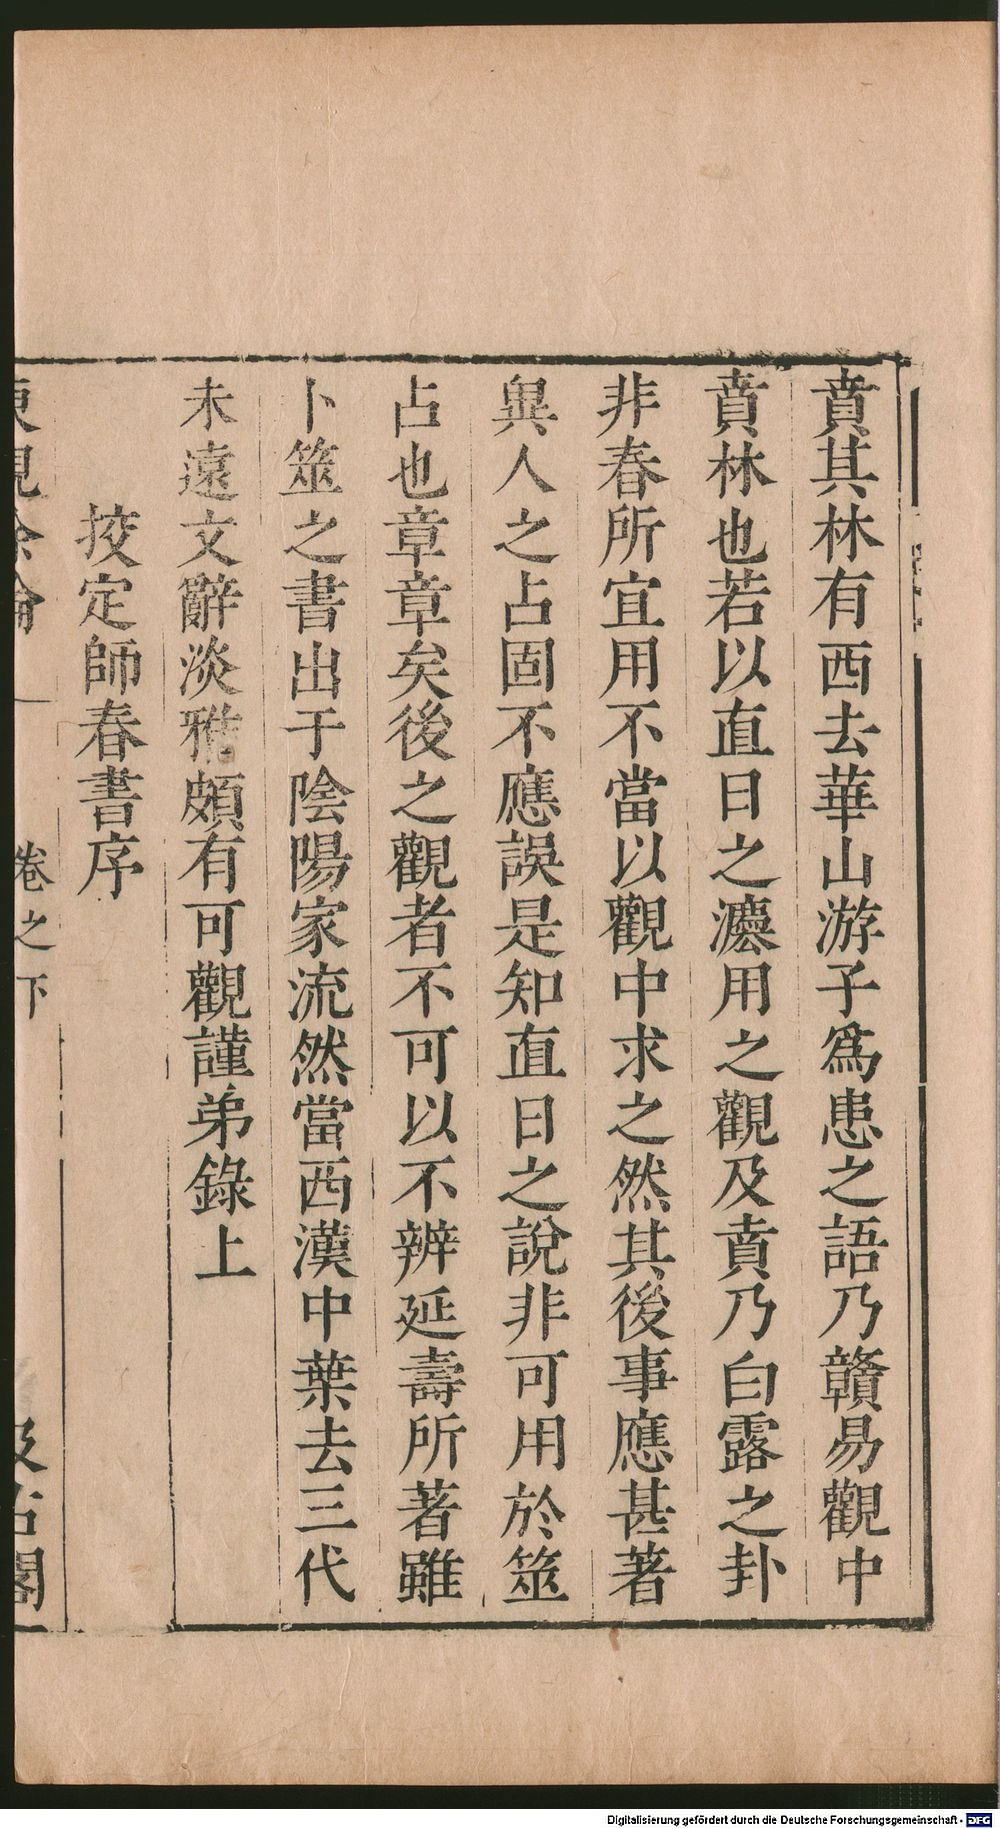 賁其林有西去華山游子爲患之語乃贛易觀中
賁林也若以直日之灋用之觀及賁乃白露之卦
非春所宜用不當以觀中求之然其後事應甚著
異人之占固不應誤是知直日之說非可用於筮
占也章章矣後之觀者不可以不辨延壽所著雖
卜筮之書出于陰陽家流然當西漢中葉去三代
未遠文辭淡雅頗有可觀謹弟錄上
挍定師春書序
東觀餘論 卷之下 汲古閣
Digitalisierung gefördert durch die Deutsche Forschungsgemeinschaft - DFG